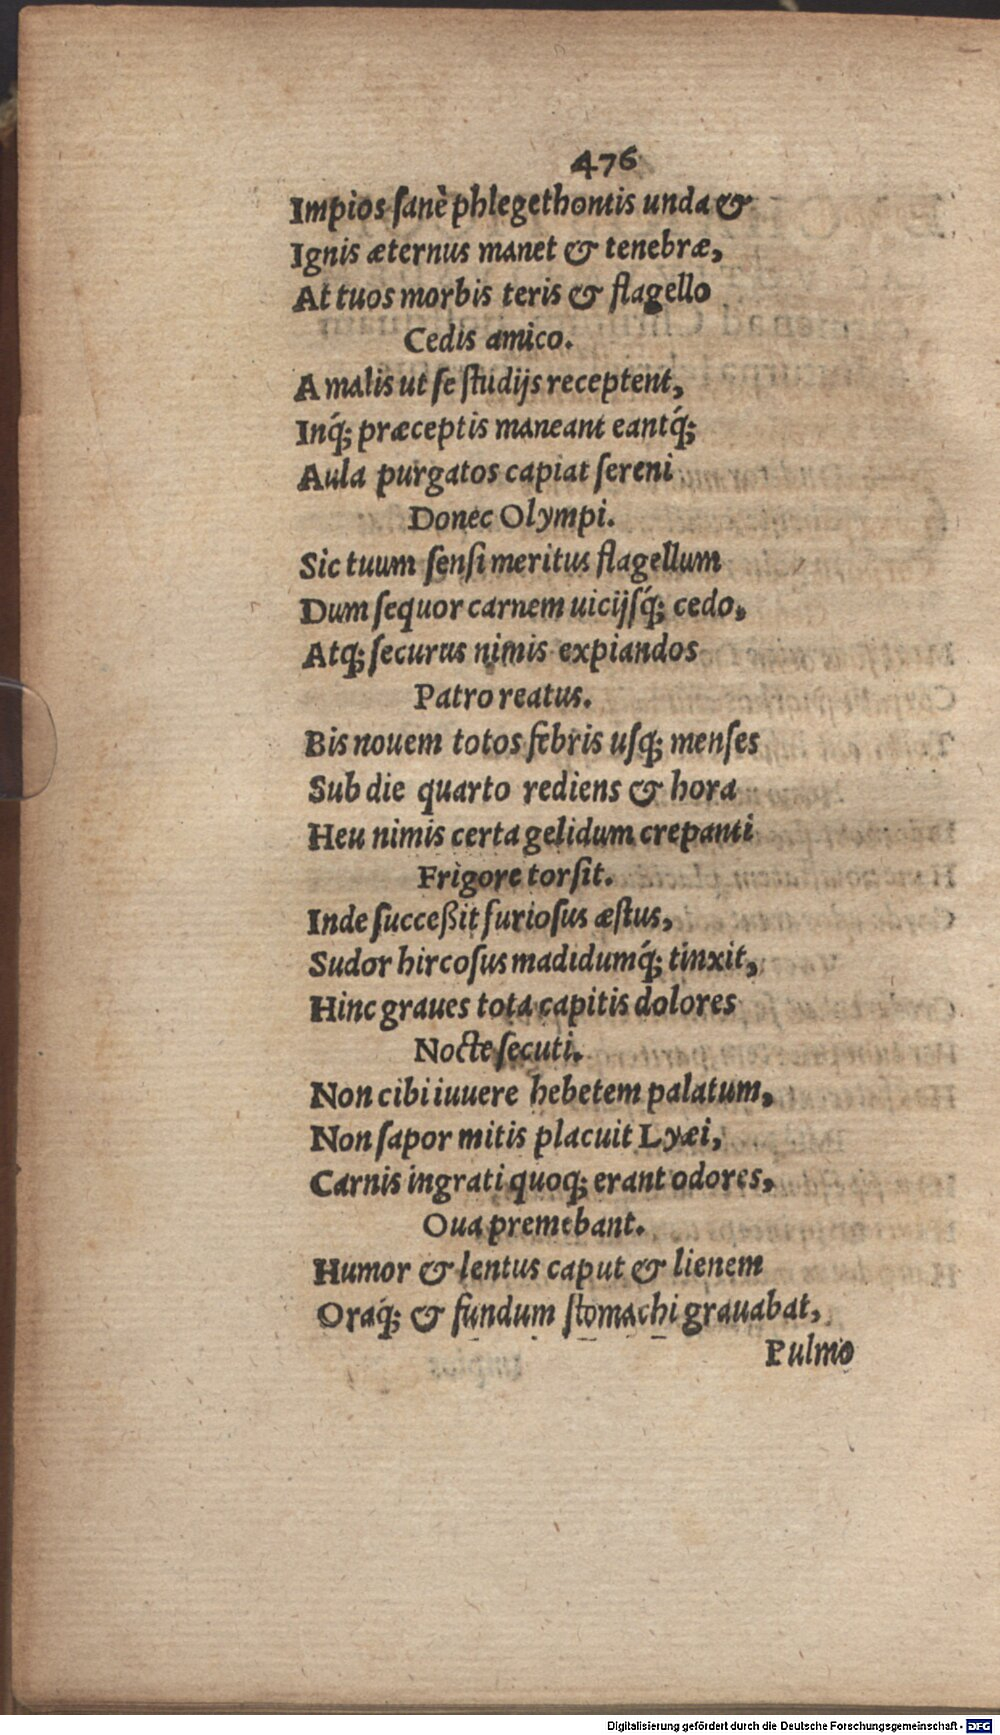 476
Impios ſanè phlegethontis unda &
Ignis æternus manet & tenebræ,
At tuos morbis teris & flagello
Cedis amico.
A malis ut ſe ſtudijs receptent,
Inq́; præceptis maneant eantq́;
Aula purgatos capiat ſereni
Donec Olympi.
Sic tuum ſenſi meritus flagellum
Dum ſequor carnem uicijſq́; cedo,
Atq; ſecurus nimis expiandos
Patro reatus.
Bis nouem totos febris uſq; menſes
Sub die quarto rediens & hora
Heu nimis certa gelidum crepanti
Frigore torſit.
Inde ſucceßit furioſus æſtus,
Sudor hircoſus madidumq́; tinxit,
Hinc graues tota capitis dolores
Nocte ſecuti.
Non cibi iuuere hebetem palatum,
Non ſapor mitis placuit Lyæi,
Carnis ingrati quoq; erant odores,
Oua premebant.
Humor & lentus caput & lienem
Oraq́; & fundum ſtomachi grauabat,
Pulmo
Digitalisierung gefördert durch die Deutsche Forschungsgemeinschaft - DFG